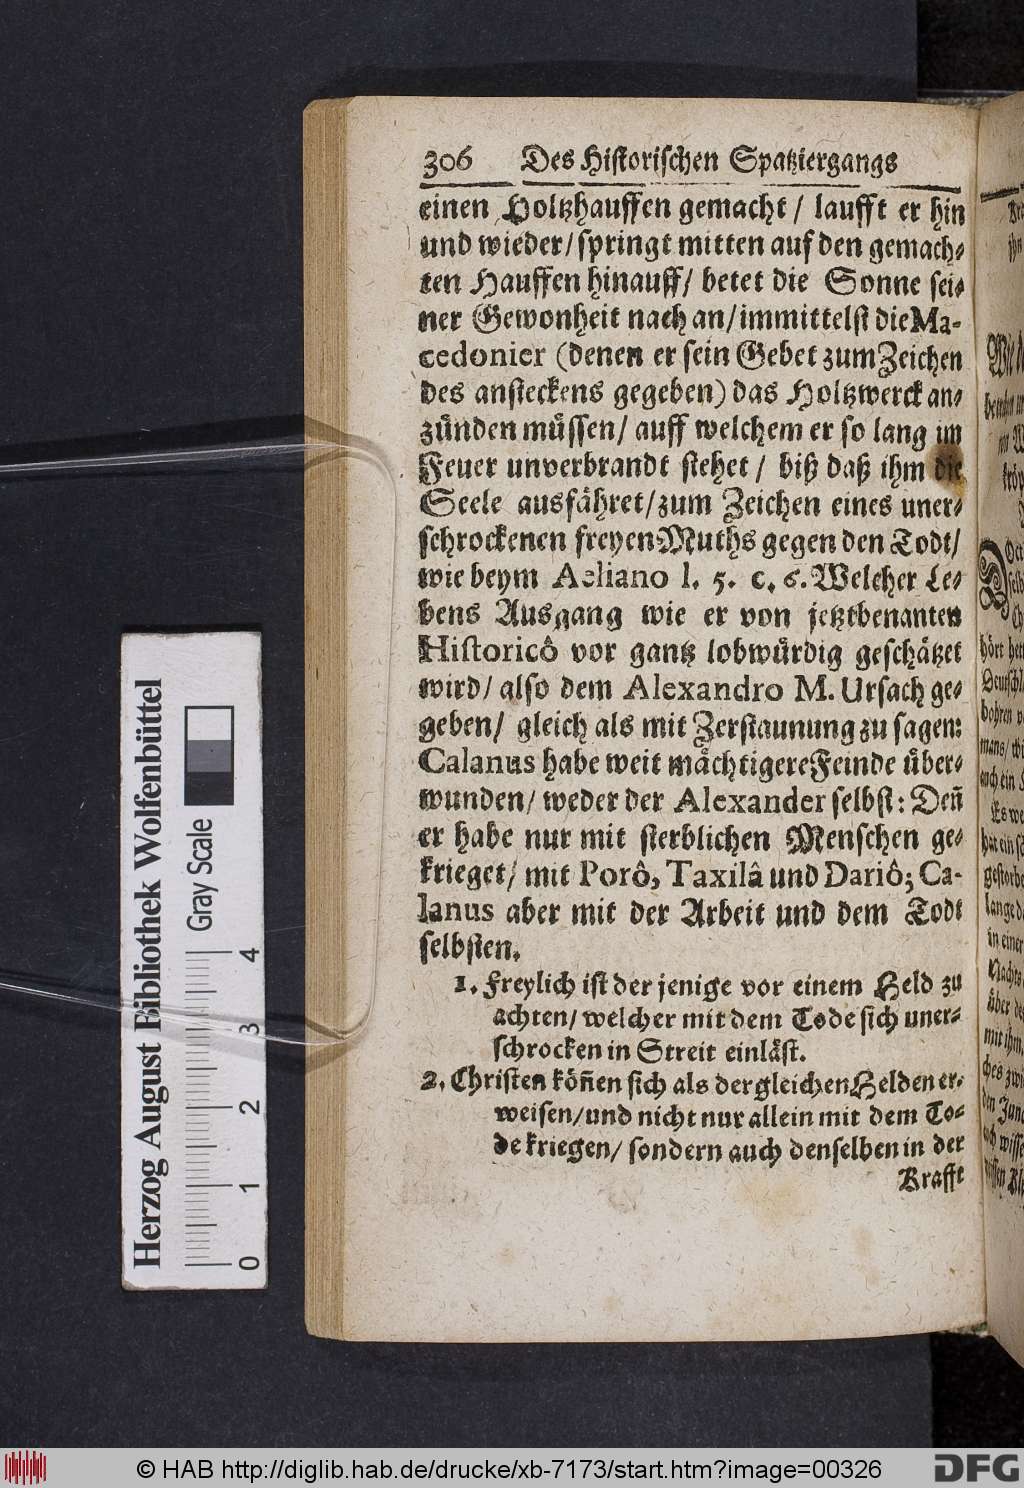 306 Des Historischen Spatziergangs
einen Holtzhauffen gemacht / laufft er hin
und wieder/ springt mitten auf den gemach-
ten Hauffen hinauff/ betet die Sonne sei-
ner Gewonheit nach an/ immittelst die Ma-
cedonier (denen er sein Gebet zum Zeichen
des ansteckens gegeben) das Holtzwerck an-
zünden müssen/ auff welchem er so lang im
Feuer unverbrandt stehet / biß daß ihm die
Seele ausfähret/ zum Zeichen eines uner-
schrockenen freyen Muths gegen den Todt/
wie beym Aeliano l. 5. c. 6. Welcher Le-
bens Ausgang wie er von jetztbenanten
Historicô vor gantz lobwürdig geschätzet
wird/ also dem Alexandro M. Ursach ge-
geben/ gleich als mit Zerstaunung zu sagen:
Calanus habe weit mächtigere Feinde über-
wunden/ weder der Alexander selbst: Deñ
er habe nur mit sterblichen Menschen ge-
krieget/ mit Porô, Taxilâ und Dariô; Ca-
lanus aber mit der Arbeit und dem Todt
selbsten.
1. Freylich ist der jenige vor einem Held zu
achten/ welcher mit dem Tode sich uner-
schrocken in Streit einläst.
2. Christen köñen sich als dergleichen Helden er-
weisen/ und nicht nur allein mit dem To-
de kriegen/ sondern auch denselben in der
Krafft
Herzog August Bibliothek Wolfenbüttel
Gray Scale
0 1 2 3 4
© HAB http://diglib.hab.de/drucke/xb-7173/start.htm?image=00326
DFG